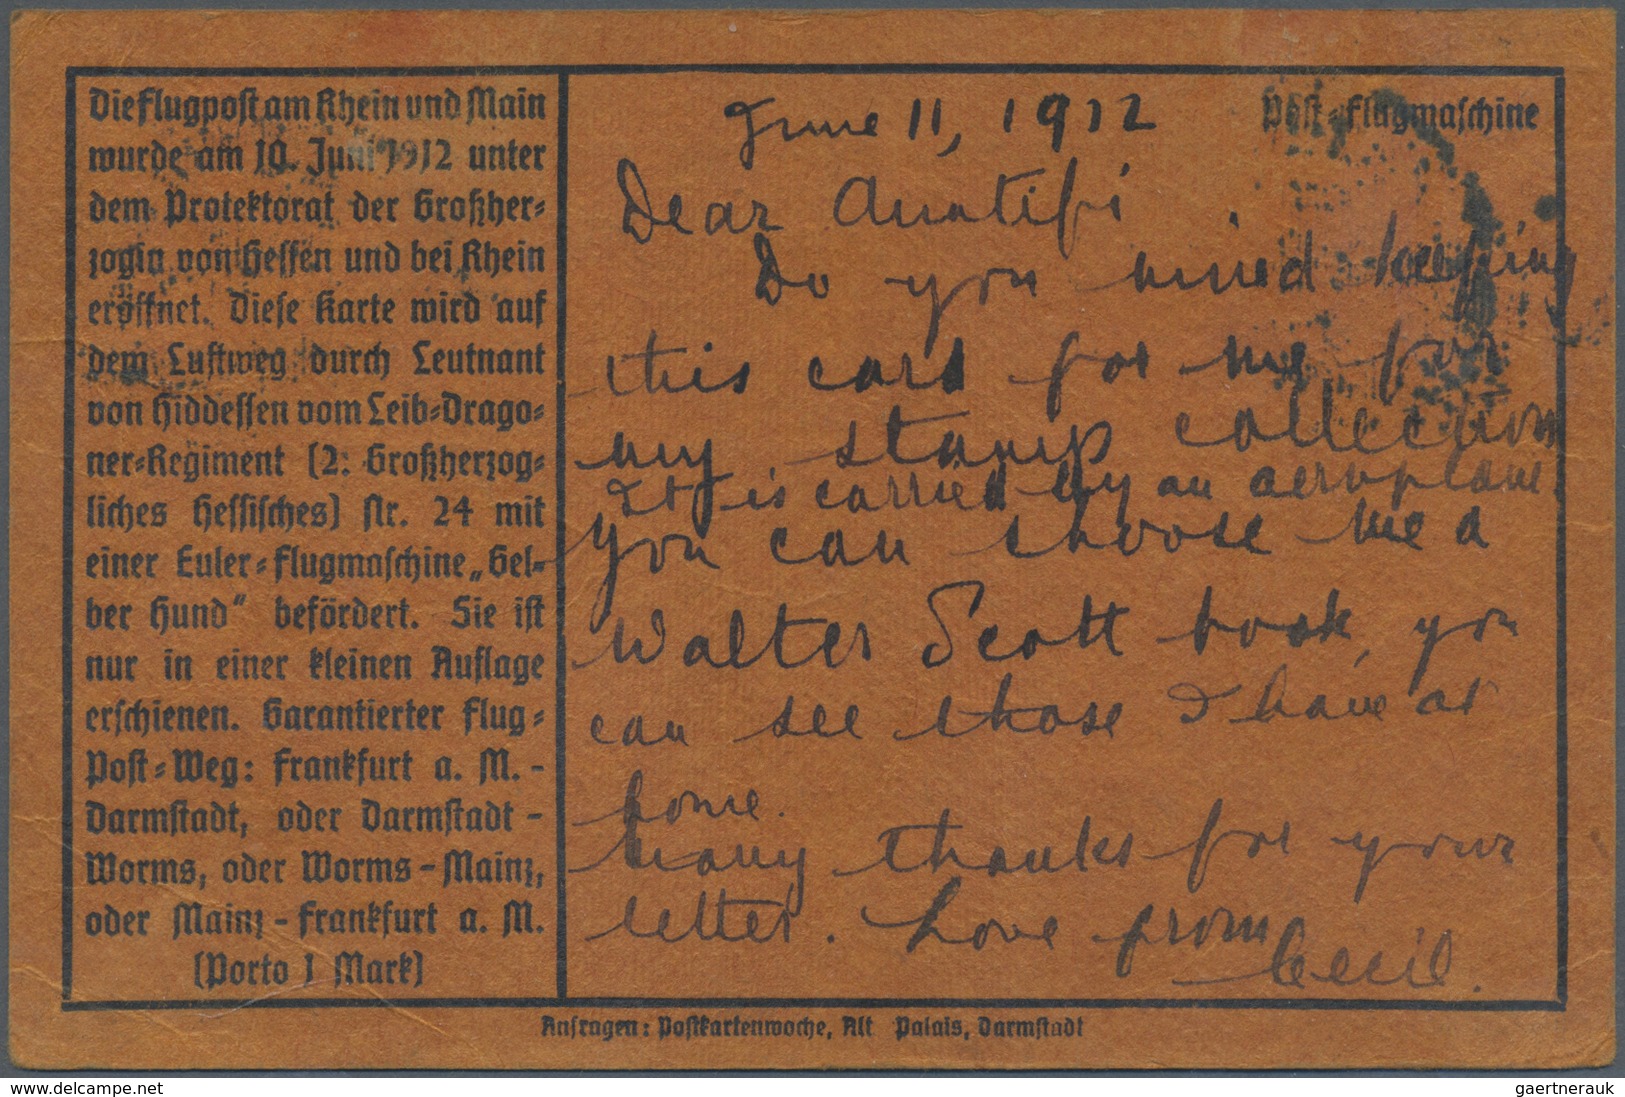 Die Flugpost am Rhein und Main
wurde am 10. Juni 1912 unter
dem Protektorat der Großher-
zogin von Hessen und bei Rhein
eröffnet. Diese Karte wird auf
dem Luftweg durch Leutnant
von Hiddessen vom Leib-Drago-
ner-Regiment (2. Großherzog-
liches Hessisches) Nr. 24 mit
einer Euler-Flugmaschine „Gel-
ber Hund" befördert. Sie ist
nur in einer kleinen Auflage
erschienen. Garantierter Flug-
Post-Weg: Frankfurt a. M. -
Darmstadt, oder Darmstadt -
Worms, oder Worms - Mainz,
oder Mainz - Frankfurt a. M.
(Porto 1 Mark)
Post-Flugmaschine
June 11, 1912
Dear
Do you mind keeping
this card for me for
my stamp collection
It is carried by an aeroplane.
You can choose me a
Walter Scott book, you
can see those I have at
home.
Many thanks for your
letter. Love from
Cecil.
Anfragen: Postkartenwoche, Alt Palais, Darmstadt
www.delcampe.net
gaertnerauk